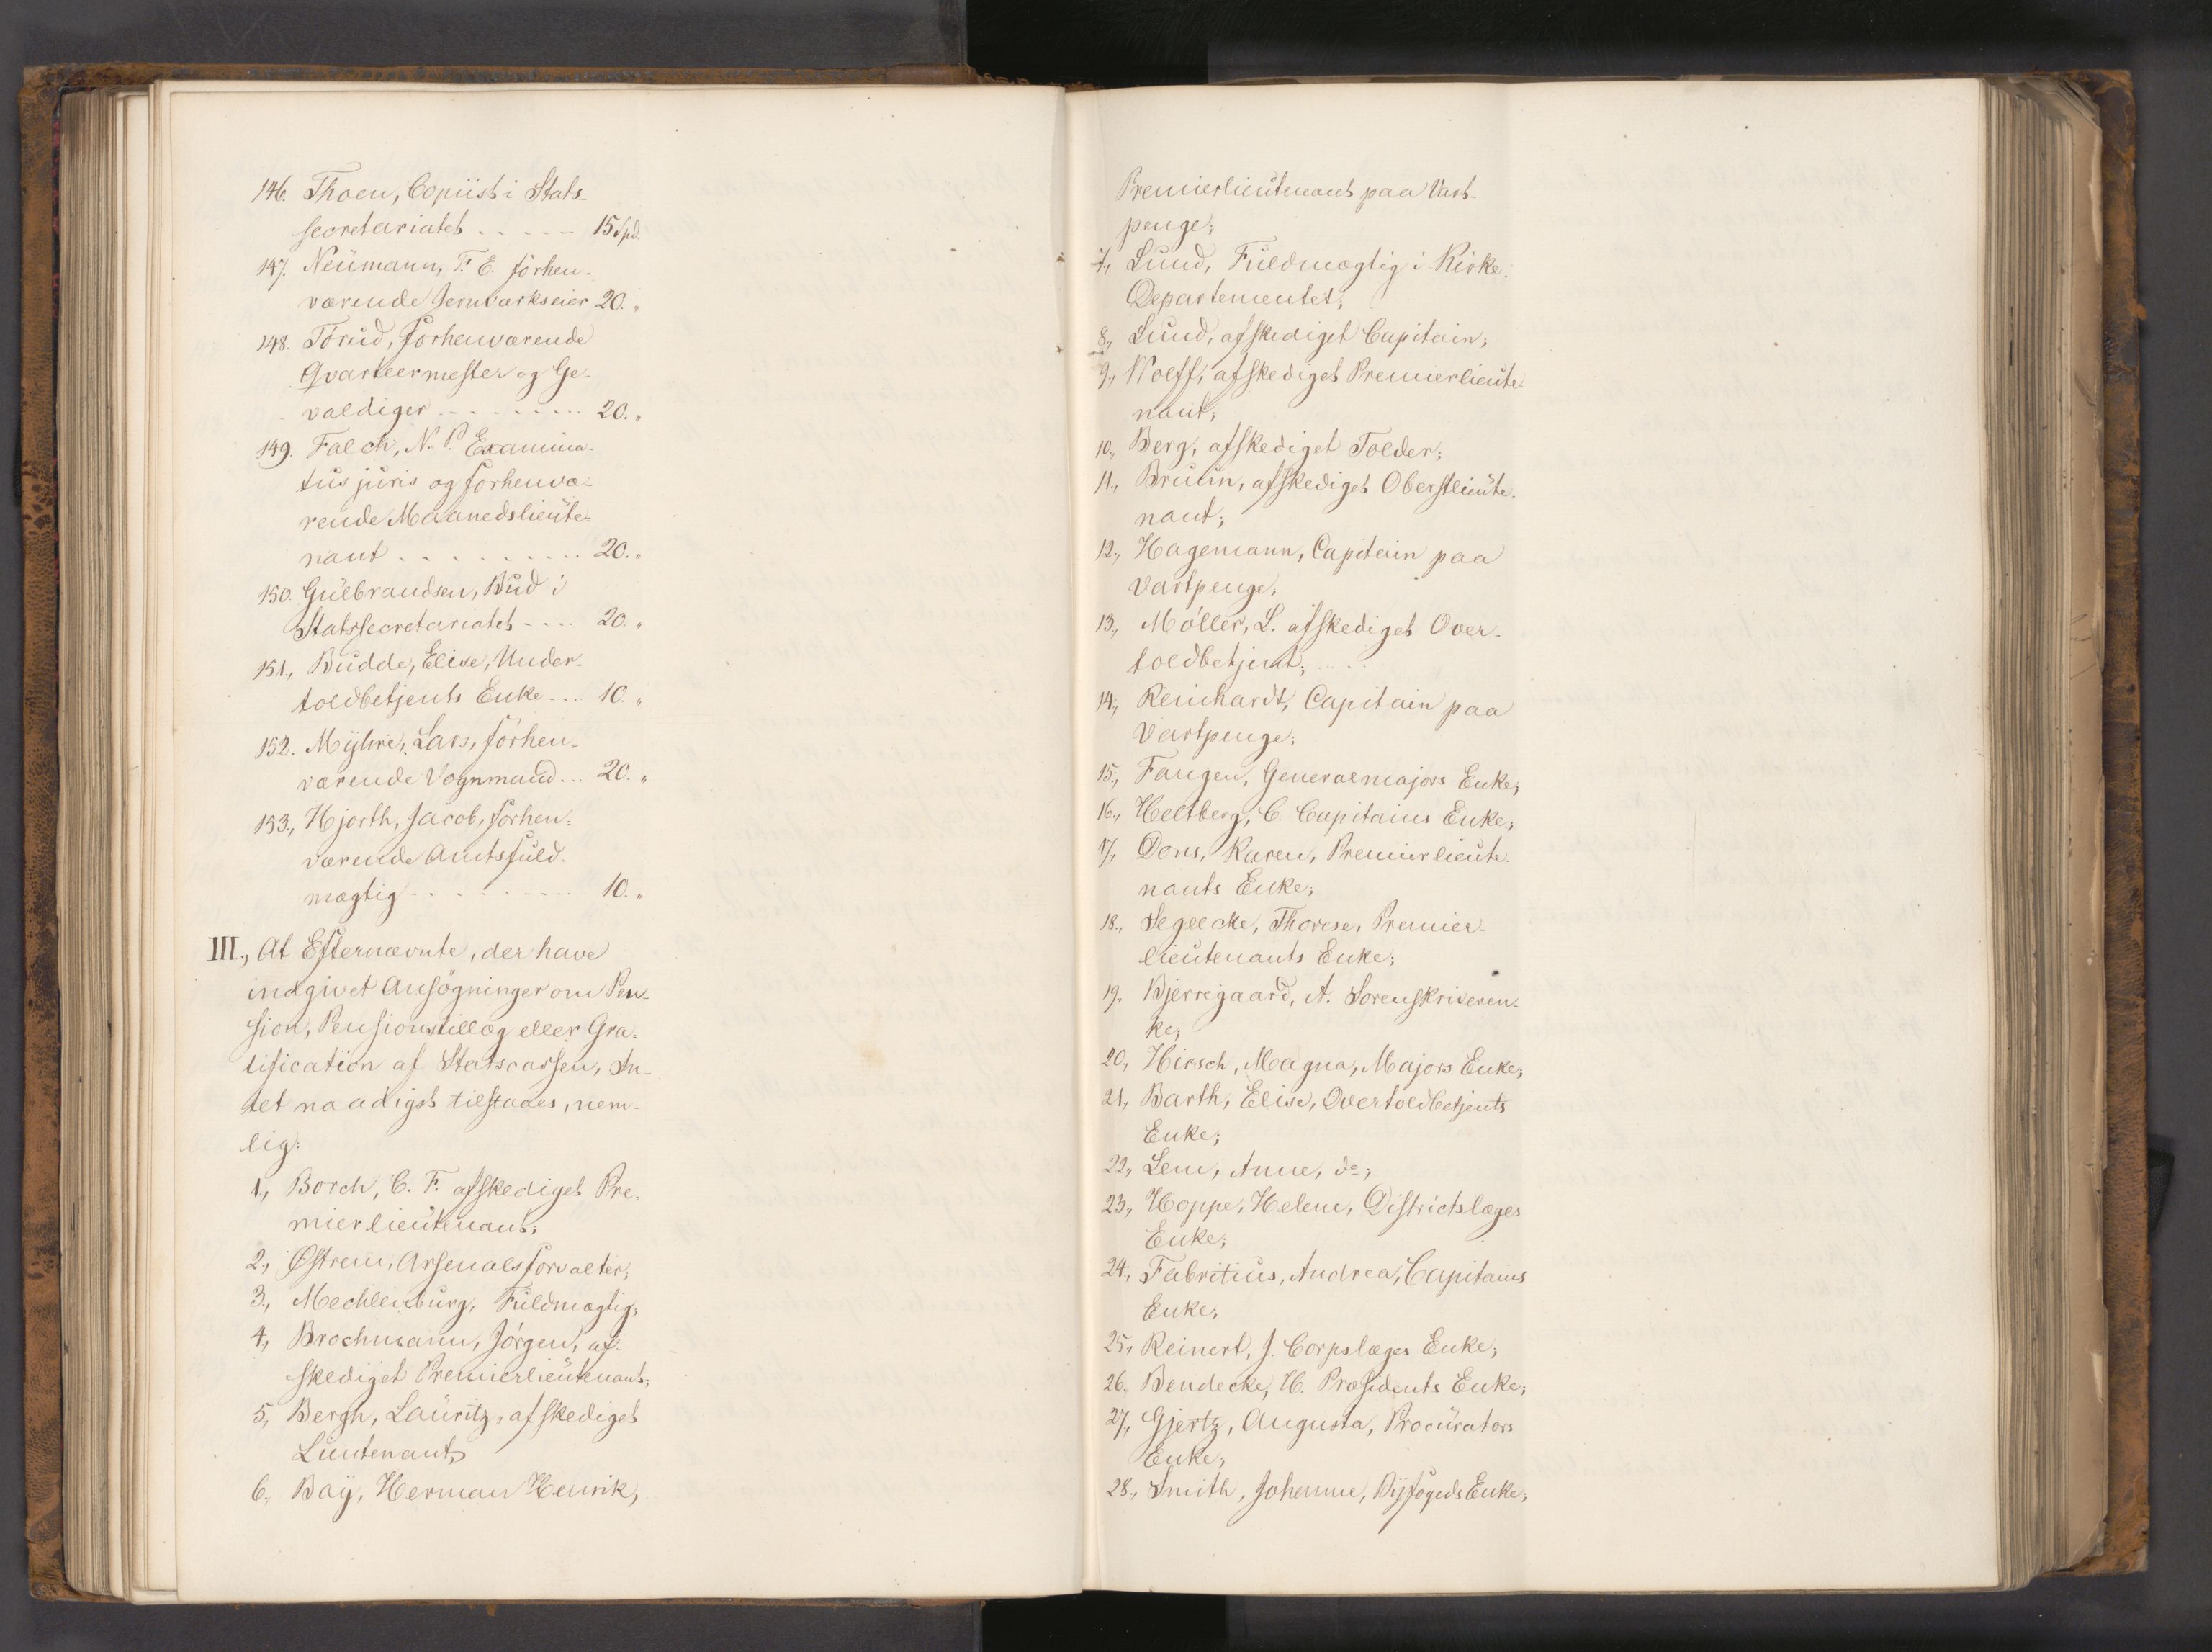 146. Thoen, Copiist i Stats-
secretariatet . . . . . 15 Spd.
147. Neümann, F. E. forhen-
værende Jernværkseier 20. "
148. Torüd, forhenværende
Qvarteermester og Ge-
valdiger . . . . . . . . 20. "
149. Falch, N. P. Examina-
tüs jüris og forhenvæ-
rende Maanedslieüte-
nant . . . . . . . . . 20. "
150. Gülbrandsen, Büd i
Statssecretariatet . . . . 20. "
151., Büdde, Elise, Under-
toldbetjents Enke . . . 10. "
152. Myhre, Lars, forhen-
værende Vognmand . . . 20. "
153., Hjorth, Jacob, forhen-
værende Amtsfuld-
mægtig . . . . . . . . . 10. "
III., At Efternævnte, der have
indgivet Ansøgninger om Pen-
sion, Pensionstillæg eller Gra-
tification af Statscassen, In-
tet naadigst tilstaaes, nem-
lig:
1., Borch, C. F. afskediget Pre-
mierlieütenant;
2., Østrem, Arsenalsforvalter;
3., Mechlenburg, Füldmægtig;
4., Brochmann, Jörgen, af-
skediget Premierlieütenant;
5., Bergh, Laüritz, afskediget
Lieutenant;
6., Bay, Herman Henrik,
Premierlieütenant paa Vart-
penge;
7., Lund, Fuldmægtig i Kirke-
Departementet;
8., Lund, afskediget Capitain;
9., Wolff, afskediget Premierlieute-
nant;
10., Berg, afskediget Tolder;
11., Bruun, afskediget Oberstlieüte-
nant;
12., Hagemann, Capitain paa
Vartpenge;
13., Möller, L. afskediget Over-
toldbetjent; . . . .
14., Reinhardt, Capitain paa
Vartpenge;
15., Fangen, Generalmajors Enke;
16., Heltberg, C. Capitains Enke;
17, Dons, Karen, Premierlieute-
nants Enke;
18., Segelcke, Therese, Premier-
lieutenants Enke;
19. Bjerregaard, A. Sorenskriveren-
ke;
20, Hirsch, Magna, Majors Enke;
21, Barth, Elise, Overtoldbetjents
Enke;
22, Lem, Anne, do;
23, Hoppe, Helene, Districtslæges
Enke;
24., Fabritius, Andrea, Capitains
Enke;
25, Reinert, J. Corpslæges Enke;
26. Bendecke, H. Præsidents Enke;
27, Gjertz, Augusta, Procürators
Enke;
28., Smith, Johanne, Byfogeds Enke;